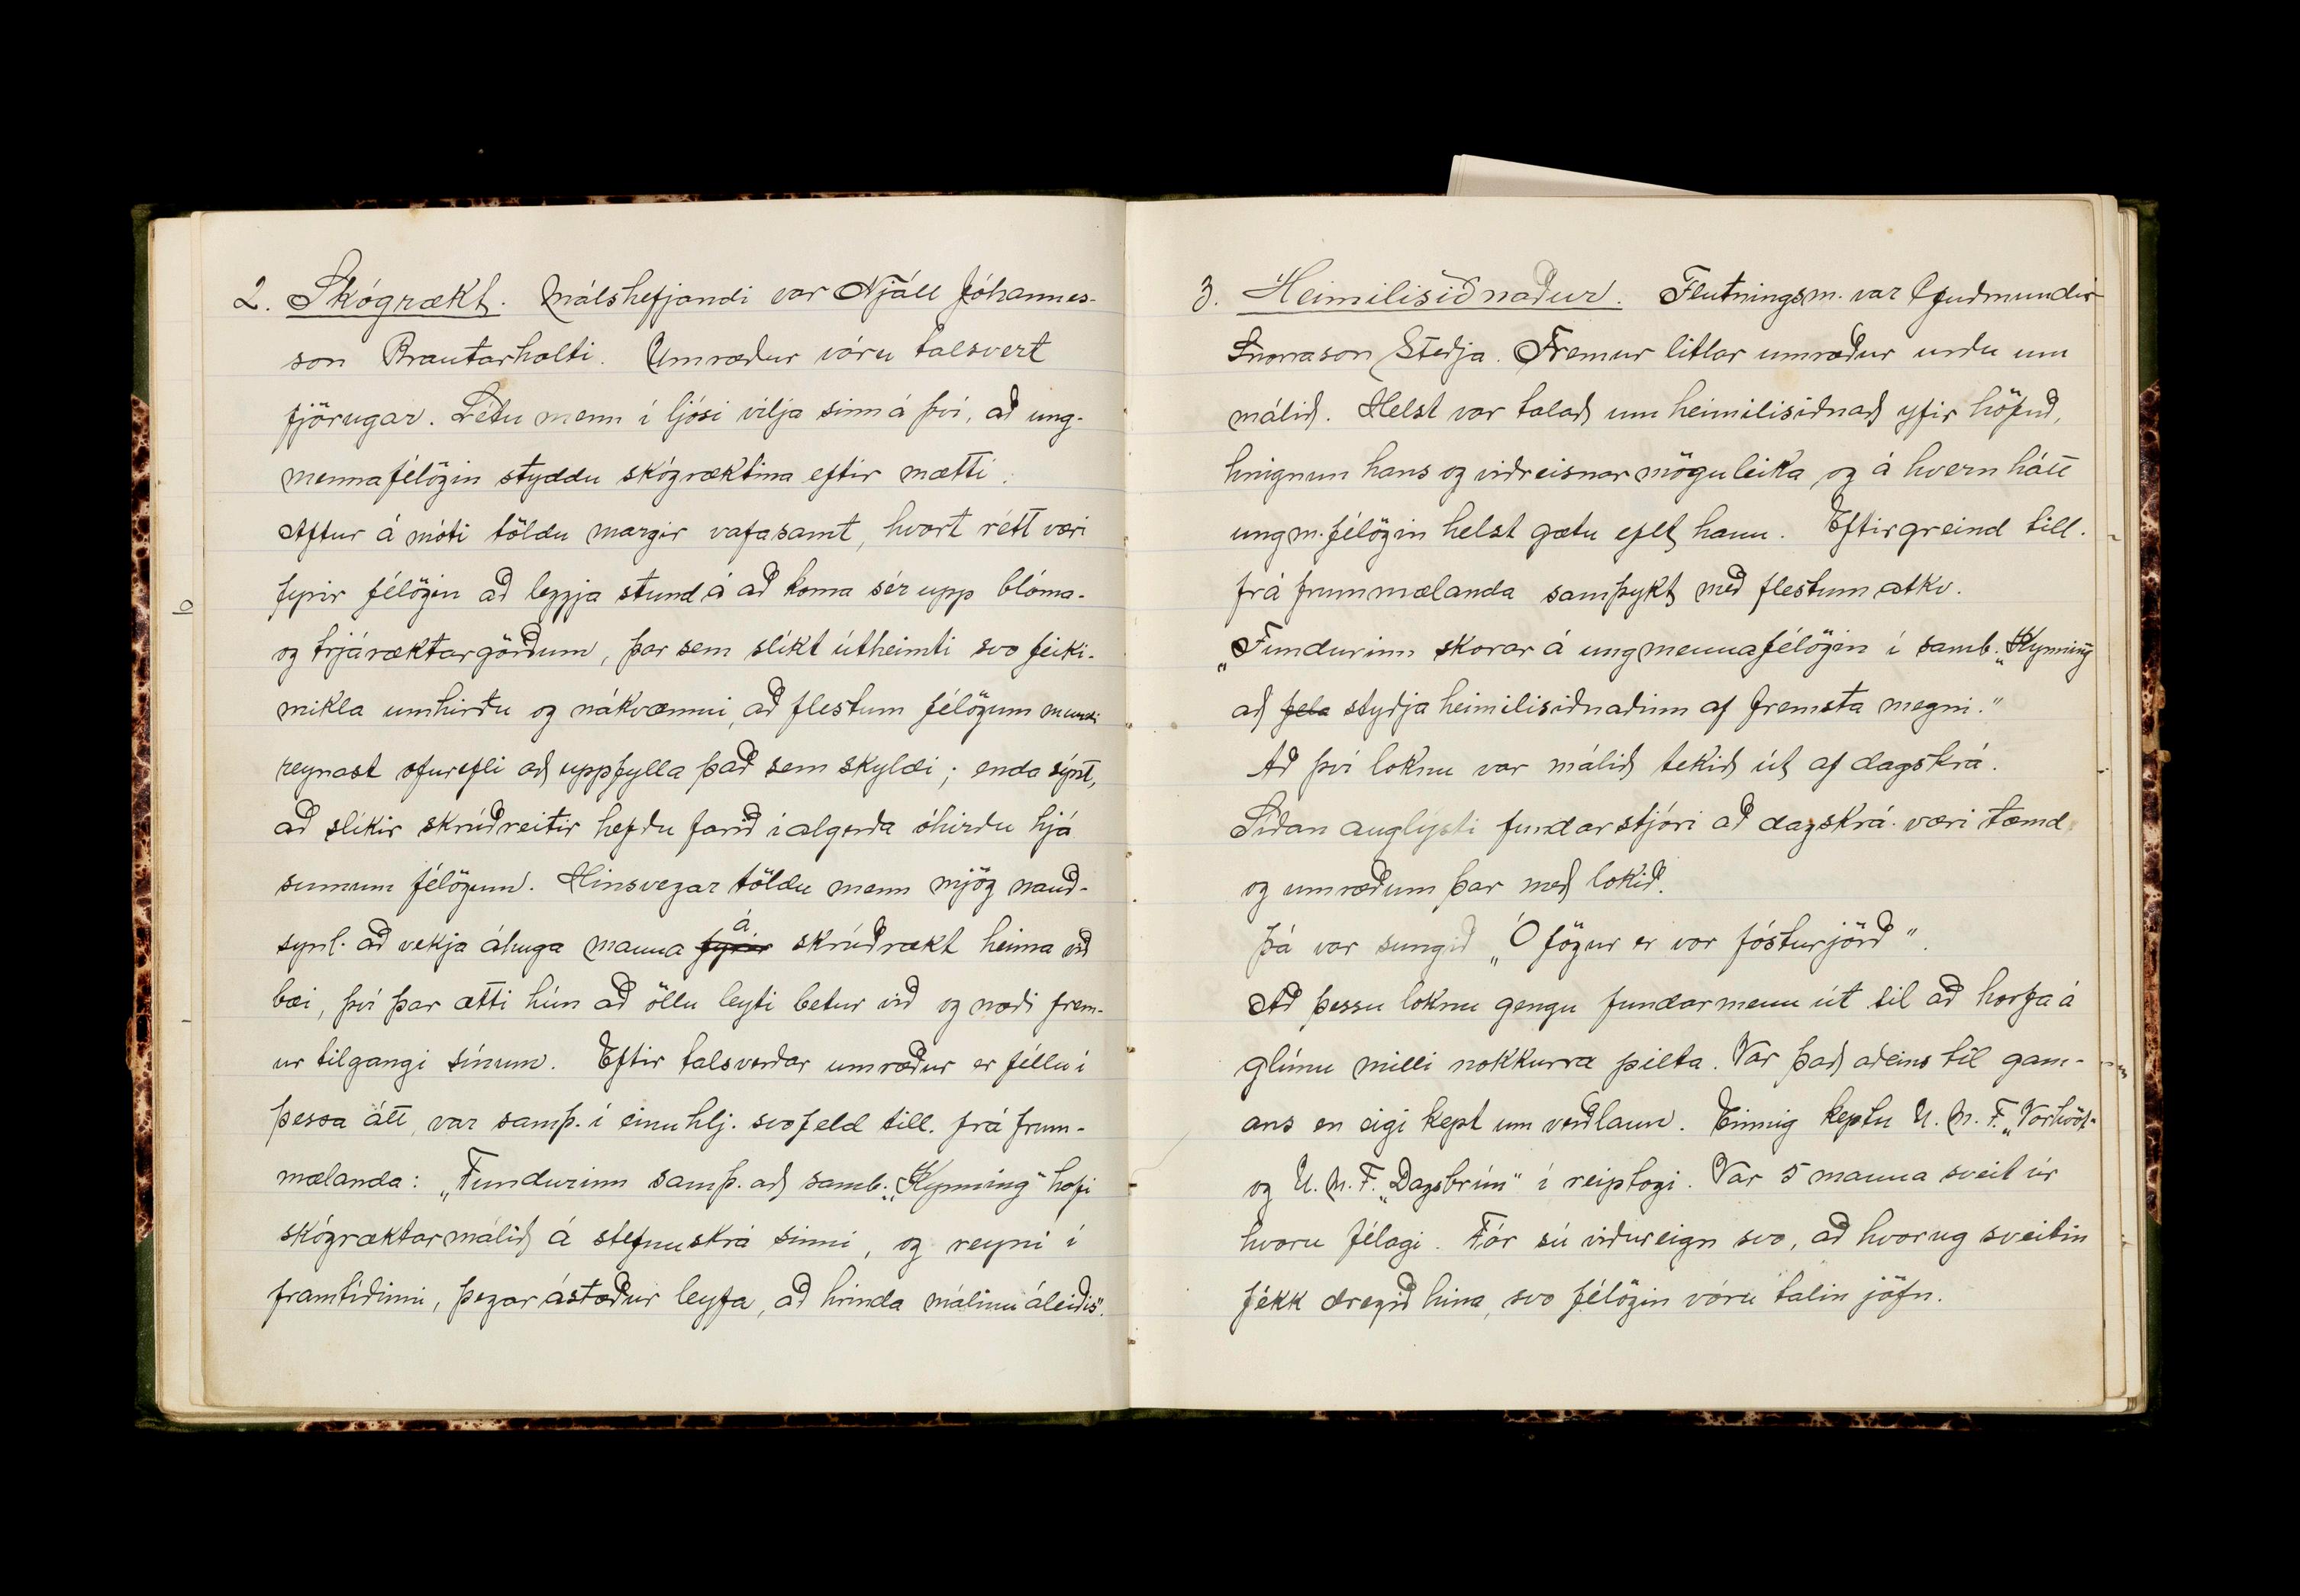 2. Skógrækt. Málshefjandi var Njáll Jóhannes-
son Brautarholti. Umræður vóru talsvert
fjörugar. Létu menn í ljósi vilja sinn á því, að ung-
mennafélögin styddu skógræktina eftir mætti.
Aftur á móti töldu margir vafasamt, hvort rétt væri
fyrir félögin að leggja stund á að koma sér upp blóma-
og trjáræktargörðum, þar sem slíkt útheimti svo feiki-
mikla umhirðu og nákvæmni, að flestum félögum mundi
reynast ofurefli að uppfylla það sem skyldi; enda sýnt,
að slíkir skrúðreitir hefðu farið í algerða óhirðu hjá
sumum félögum. Hinsvegar töldu menn mjög nauð-
synl. að vekja áhuga manna fyrir á skrúðrækt heima við
bæi, því þar ætti hún að öllu leyti betur við og næði frem-
ur tilgangi sínum. Eftir talsverðar umræður er féllu í
þessa átt, var samþ. í einu hlj. svofeld till. frá frum-
mælanda: „Fundurinn samþ. að samb. „Kynning" hafi
skógræktarmálið á stefnuskrá sinni, og reyni í
framtíðinni, þegar ástæður leyfa, að hrinda málinu áleiðis".
3. Heimilisiðnaður. Flutningsm. var Guðmundur
Snorrason Steðja. Fremur litlar umræður urðu um
málið. Helst var talað um heimilisiðnað yfir höfuð,
hnignun hans og viðreisnar möguleika, og á hvern hátt
ungm.félögin helst gætu eflt hann. Eftirgreind till.
frá frummælanda samþykt með flestum atkv.
„Fundurinn skorar á ungmennafélögin í samb. „Kynning
að fela styðja heimilisiðnaðinn af fremsta megni."
Að því loknu var málið tekið út af dagskrá.
Síðan auglýsti fundarstjóri að dagskrá væri tæmd
og umræðum þar með lokið.
Þá var sungið „Ó fögur er vor fósturjörð".
Að þessu loknu gengu fundarmenn út til að horfa á
glímu milli nokkurra pilta. Var það aðeins til gam-
ans en eigi kept um verðlaun. Einnig keptu U. M. F. „Vorhvöt"
og U. M. F. „Dagsbrún" í reiptogi. Var 5 manna sveit úr
hvoru félagi. Fór sú viðureign svo, að hvorug sveitin
fékk dregið hina, svo félögin vóru talin jöfn.